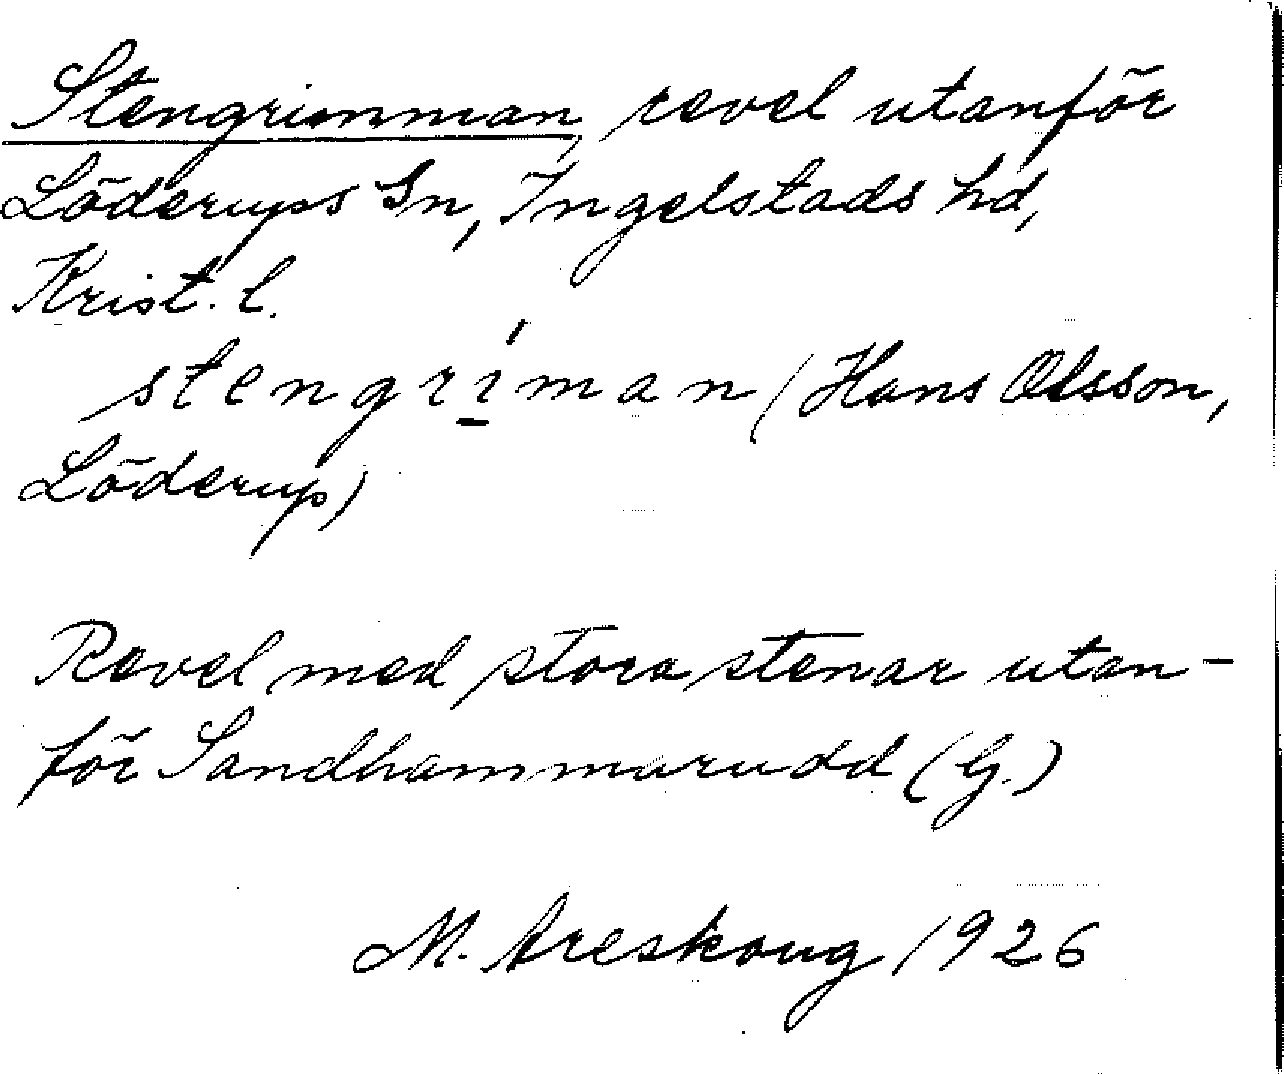 Stengrimman, revel utanför
Löderups Sn, Ingelstads hd,
Krist. l.
stengrı̱́man (Hans Olsson,
Löderup)
Revel med stora stenar utan-
för Sandhammarudd (G.)
M. Areskoug 1926